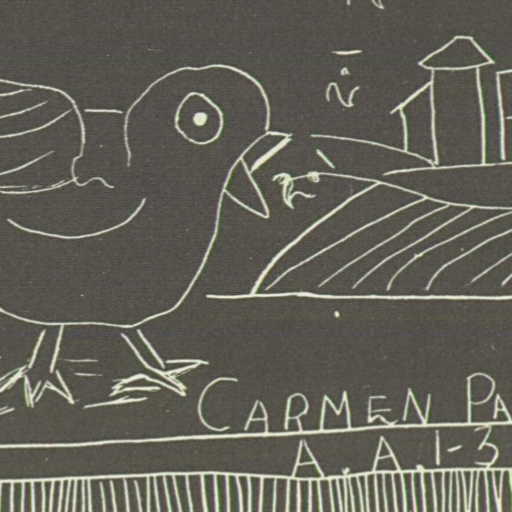 CARMEN PA
A.A.1-3